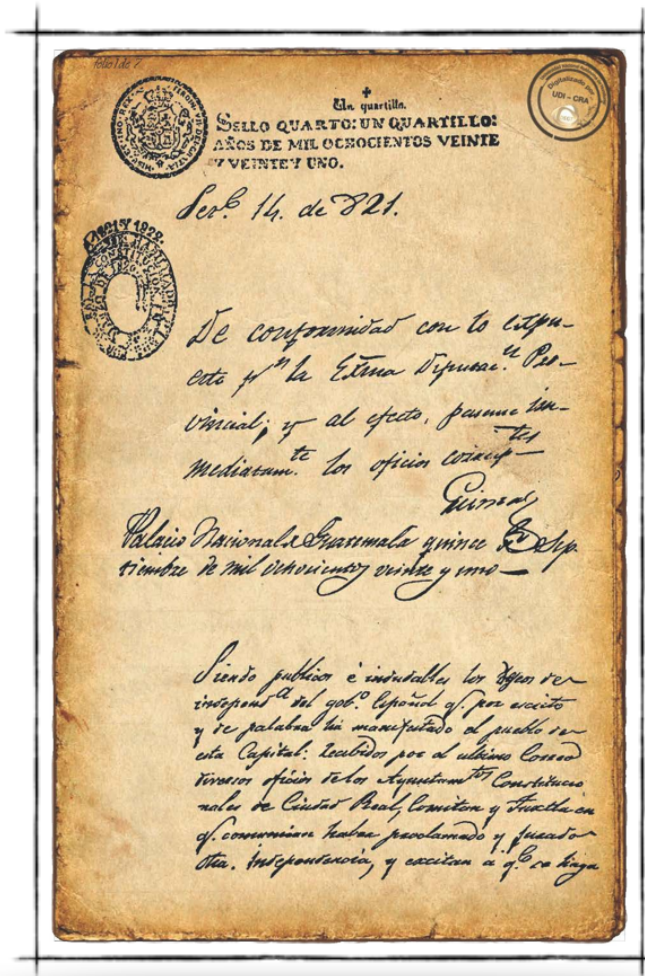 Folio 1 de 7
Un quartillo.
SELLO QUARTO: UN QUARTILLO:
AÑOS DE MIL OCHOCIENTOS VEINTE
Y VEINTE Y UNO.
Digitalizado por
UDI - CRA
14. de 821.
1821 Y 1822.
De conformidad con lo expu-
esto pr la Exma Diputac.n Pro-
vincial; y al efecto, pasense in-
mediatam.te los oficios
Palacio Nacional de Guatemala quince de Sep.
tiembre de mil ochocientos veinte y uno
Siendo publicos é indudables los deseos de
independ.a del gob.o Español q. por escrito
y de palabra ha manifestado el pueblo de
esta Capital: recibidos por el ultimo Correo
diversos oficios de los Ayuntam.tos Constitucio
nales de Ciudad Real, Comitan y Tuxtla en
q. comunican haber proclamado y jurado
dha. independencia, y excitan á q.e se haga